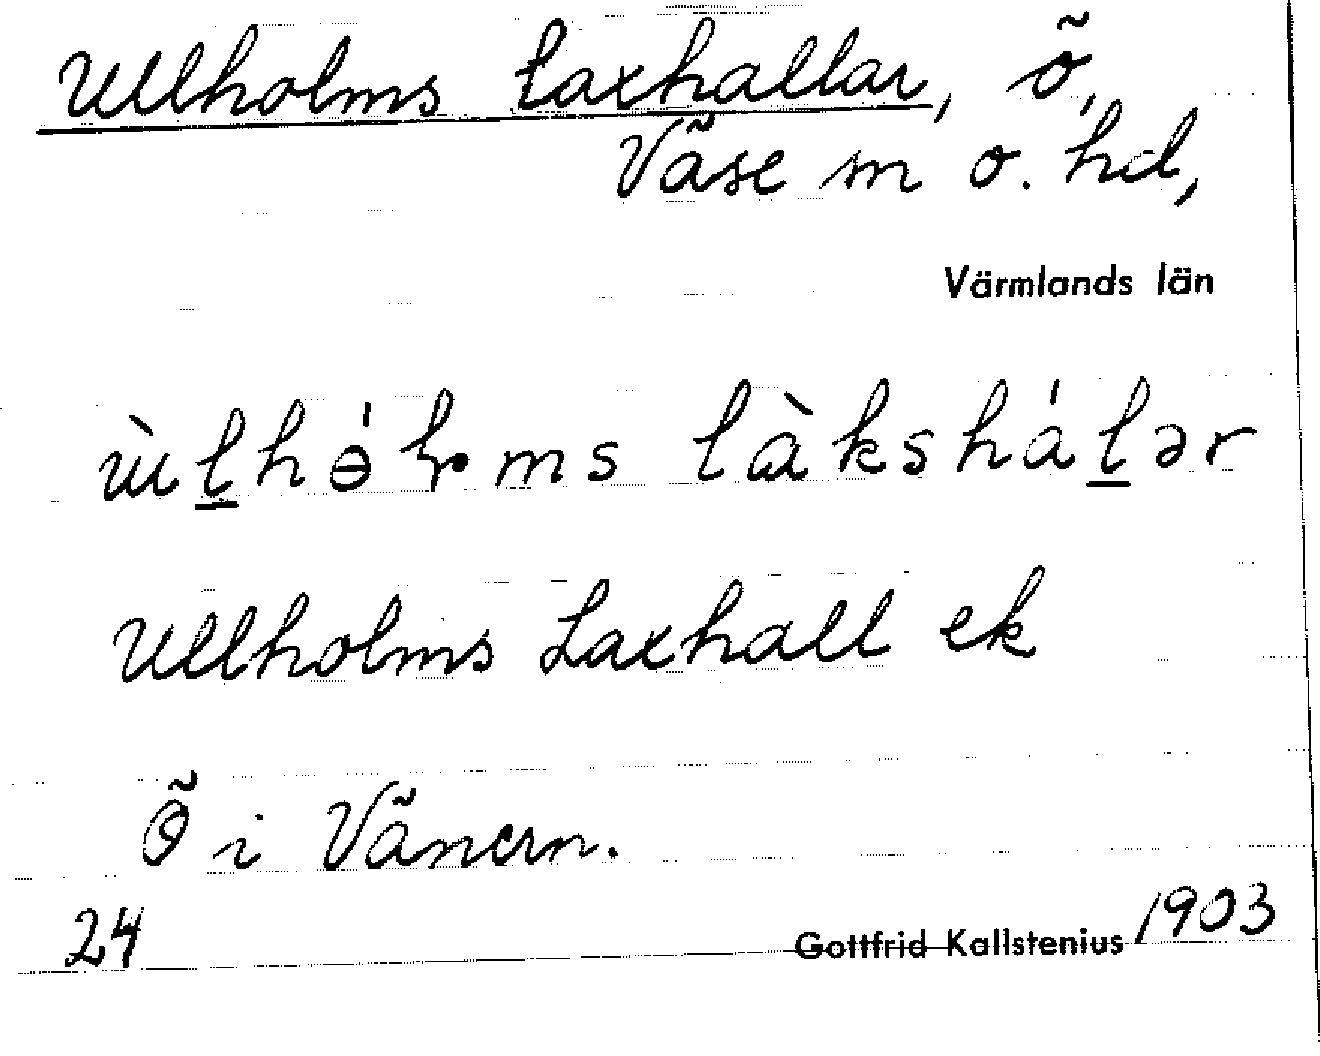 Ullholms Laxhallar, ö,
Väse m o. hd,
Värmlands län
ùl̲hɵ́ɫms làkshál̲ər
Ullholms Laxhall ek
Ö i Vänern.
24 Gottfrid Kallstenius 1903